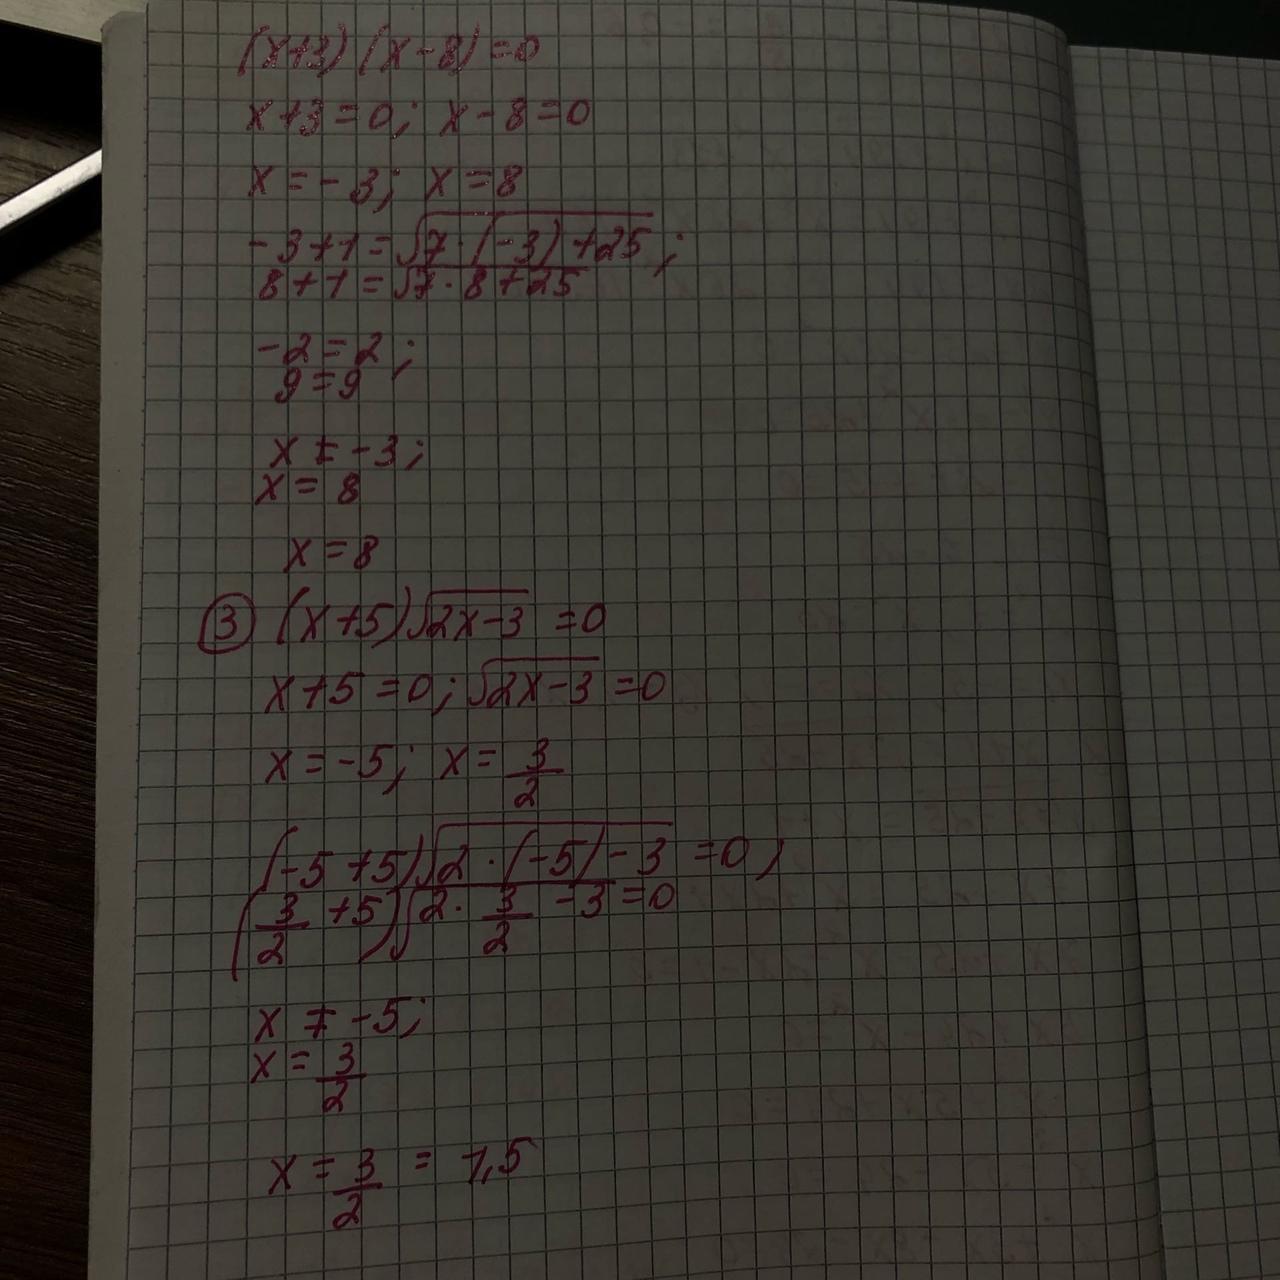 (x+3)(x-8)=0
x+3=0; x-8=0
x=-3; x=8
-3+1=√(7·(-3)+25);
8+1=√(7·8+25)
-2=2;
9=9
x≠-3;
x=8
x=8
③ (x+5)√(2x-3)=0
x+5=0; √(2x-3)=0
x=-5; x=3/2
(-5+5)√(2·(-5)-3)=0;
(3/2+5)√(2·3/2-3)=0
x≠-5;
x=3/2
x=3/2=1,5